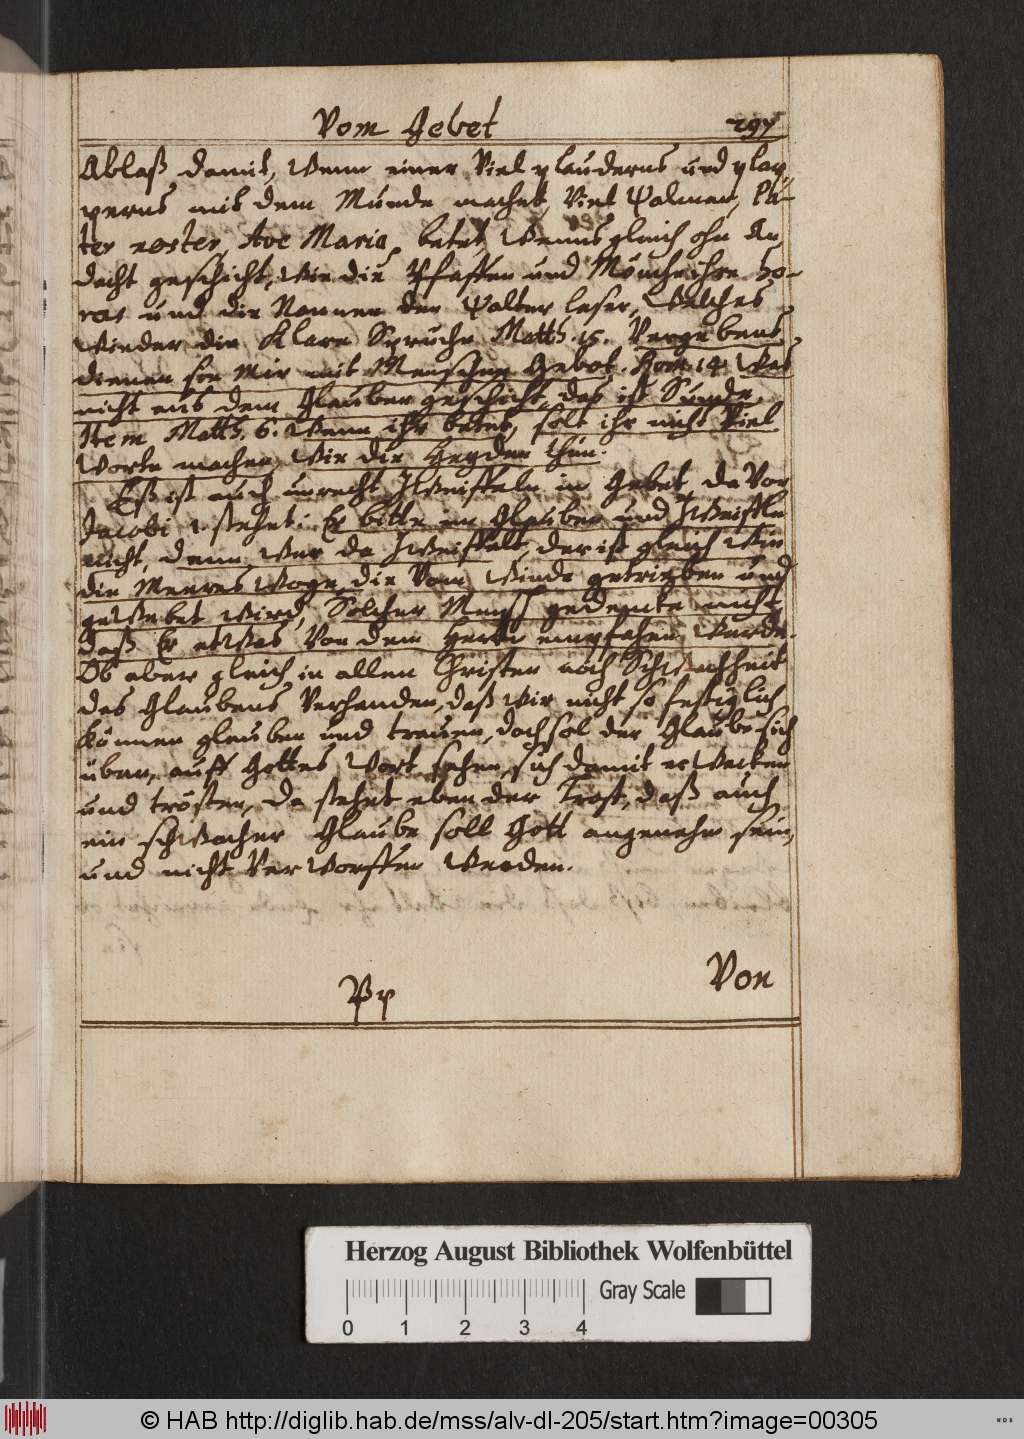 Vom Gebet 297
Ablaß damit, Wenn einer Viel plauderns und plap-
perns mit dem Munde machet, Viel Psalmen, Pa-
ter noster, Ave Maria, betet, Wenns gleich ohn An-
dacht geschicht, Wie die Pfaffen und Mönche ihre ho-
ras und die Nonnen den Psalter lesen, Welches
Wieder die Klare Spruche Matth. 15. Vergebens
dienen sie Mir mit Menschen Gebot. Rom. 14 Was
nicht aus dem Glauben geschicht, das ist Sünde,
Item Matth. 6. Wenn ihr betet, solt ihr nicht Viel
Worte machen, Wie die Heyden thun.
Eß ist auch unrecht ZWeiffeln im Gebet, da Von
Jacobi 1 stehet: Er bitte im Glauben und ZWeiffle
nicht, denn Wer da ZWeiffelt, der ist gleich Wie
die Meeres Woge, die Vom Winde getrieben und
geWebet Wird, Solcher Mensch gedencke nicht
daß Er etWas Von dem Herrn empfahen Werde.
Ob aber gleich in allen Christen noch SchWachheit
des Glaubens Verhanden, daß Wir nicht so festiglich
können glauben und trauen, doch sol der Glaube sich
üben, auff Gottes Wort sehen, sich damit erWecken
und trösten, Da stehet eben der Trost, daß auch
ein schWacher Glaube soll Gott angenehm sein,
und nicht VerWorffen Werden.
Pp Von
Herzog August Bibliothek Wolfenbüttel
Gray Scale
0 1 2 3 4
© HAB http://diglib.hab.de/mss/alv-dl-205/start.htm?image=00305
WDB